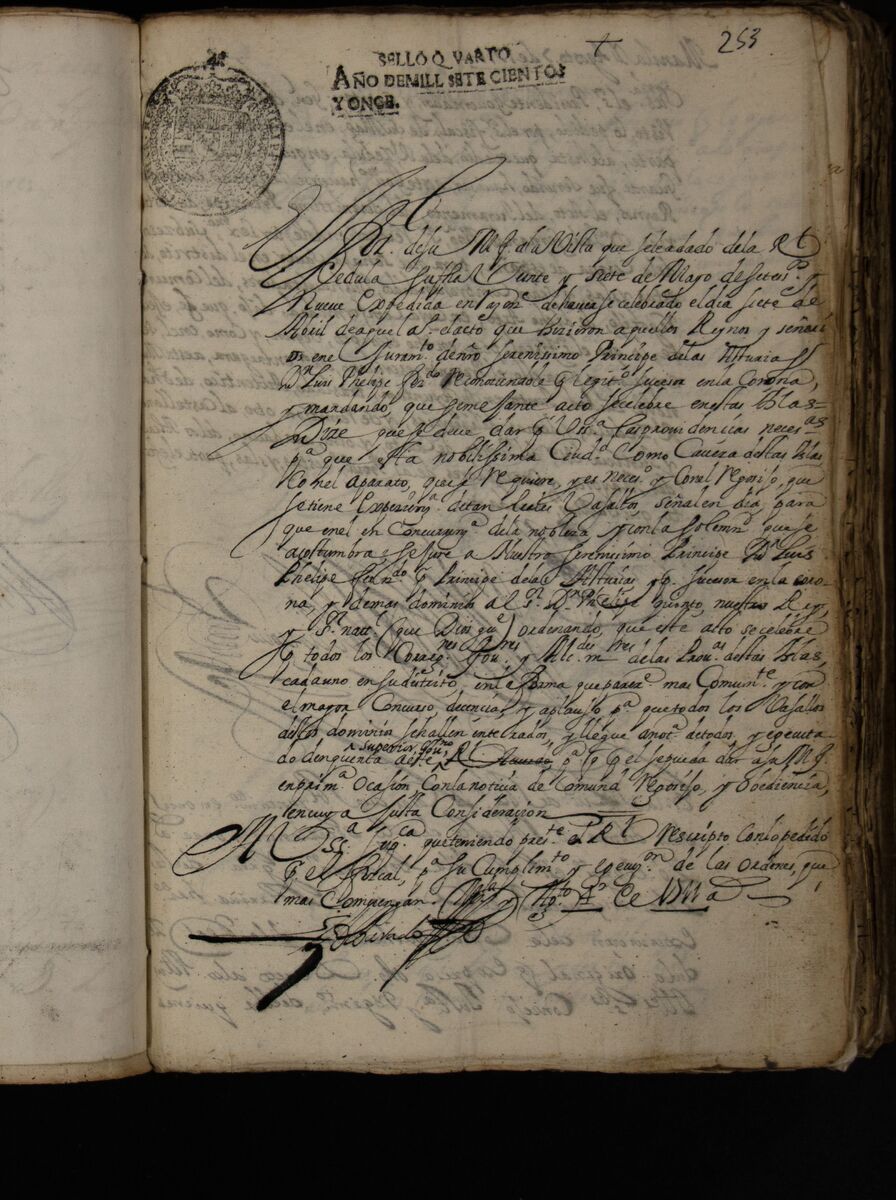 253
SELLO QVARTO
AÑO DE MILL SETECIENTOS
Y ONCE.
de su Mg. a la Vista que se le a dado de la Rl
Cedula su fha Veinte y Siete de Mayo de setecs. y
Nueve Expedida en razon de haverse celebrado el dia siete de
Abril de aquel a. el acto que hizieron aquellos Reynos y señori
os en el Juramto. de nro serenissimo Principe de las Asturias
Dn Luis Phelipe ferdo Reconociendole legito. sucesor en la Corona,
y mandando, que semejante acto se celebre en estas Yslas
Dize que se deve dar las providencias necesas
pa que esta nobilissima Ciudd. como Cavera destas Yslas
con el aparato, que se requiere, y es neceso. y con el regosijo, que
se tiene experiena. de tan leales Vasallos, señalen dia, para
que en el en concurrena. de la nobleza y con la solemnd. que se
acostumbra se jure a Nuestro serenissimo Principe Dn. Luis
Phelipe ferndo Principe de las Asturias y sucesor en la coro
na, y demas dominios al Sr. Dn Phelipe quinto, nuestro Rey,
y Sr. natl. (que Dios gue) ordenando, que este acto se celebre
todos los Corregres Gou. y Alcdes mres de las Prouas destas Yslas,
cada uno en su districto, en la forma que parere. mas Comunte. y con
el mayor Concurso, decencia, y aplauso pa que todos los Vasallos
destos dominios se hallen enterados, y llegue a nota. de todos, y executa
do den quenta a este superior Gouno Rl Acuerdo pa q el se pueda dar a su Mg.
en prima. ocasion, con la noticia de comun regosijo, y obediencia,
en cuya justa Consideracion
A V Sa supca que teniendo preste el Rl rescripto con lo pedido
el fiscal, pa su Cumplimto y execuon de las ordenes, que
mas Compengan. Mla y Agto